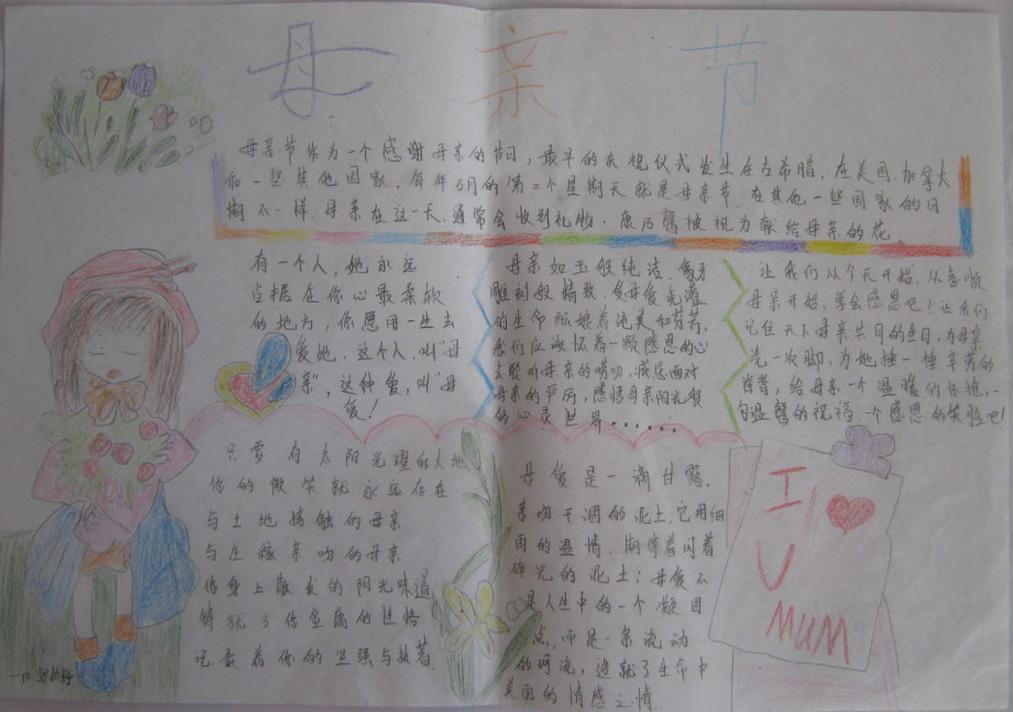 母亲节
母亲节作为一个感谢母亲的节日，最早的庆祝仪式发生在古希腊，在美国、加拿大
和一些其他国家，每年5月的第二个星期天就是母亲节，在其他一些国家的日
期不一样，母亲在这一天，通常会收到礼物，康乃馨被视为献给母亲的花。
有一个人，她永远
占据在你心最柔软
的地方，你愿用一生去
爱她，这个人，叫“母
亲”，这种爱，叫“母
爱！
母亲如玉般纯洁、象牙
雕刻般精致，
的生命酝酿着绝美和芬芳，
我们应该怀着一颗感恩的心
去聆听母亲的唠叨，诚恳面对
母亲的严厉，感悟母亲阳光般
的心灵世界······
让我们从今天开始，从孝顺
母亲开始，学会感恩吧！让我们
记住天下母亲共同的生日，为母亲
洗一次脚，为她捶一捶辛劳的
肩背，给母亲一个温暖的怀抱，一
句温馨的祝福，一个感恩的笑脸吧！
只要有太阳光耀的大地
你的微笑就永远存在
与土地接触的母亲
与庄稼亲吻的母亲
你身上散发的阳光味道
铸就了你金属的性格
记录着你的坚强与执着
母爱是一滴甘露，
亲吻干涸的泥土，它用细
雨的温情，期待着闪着
碎光的泥土；母爱不
是人生中的一个凝固
点，而是一条流动
的河流，造就了生命中
美丽的情感之情
I
U
MUM